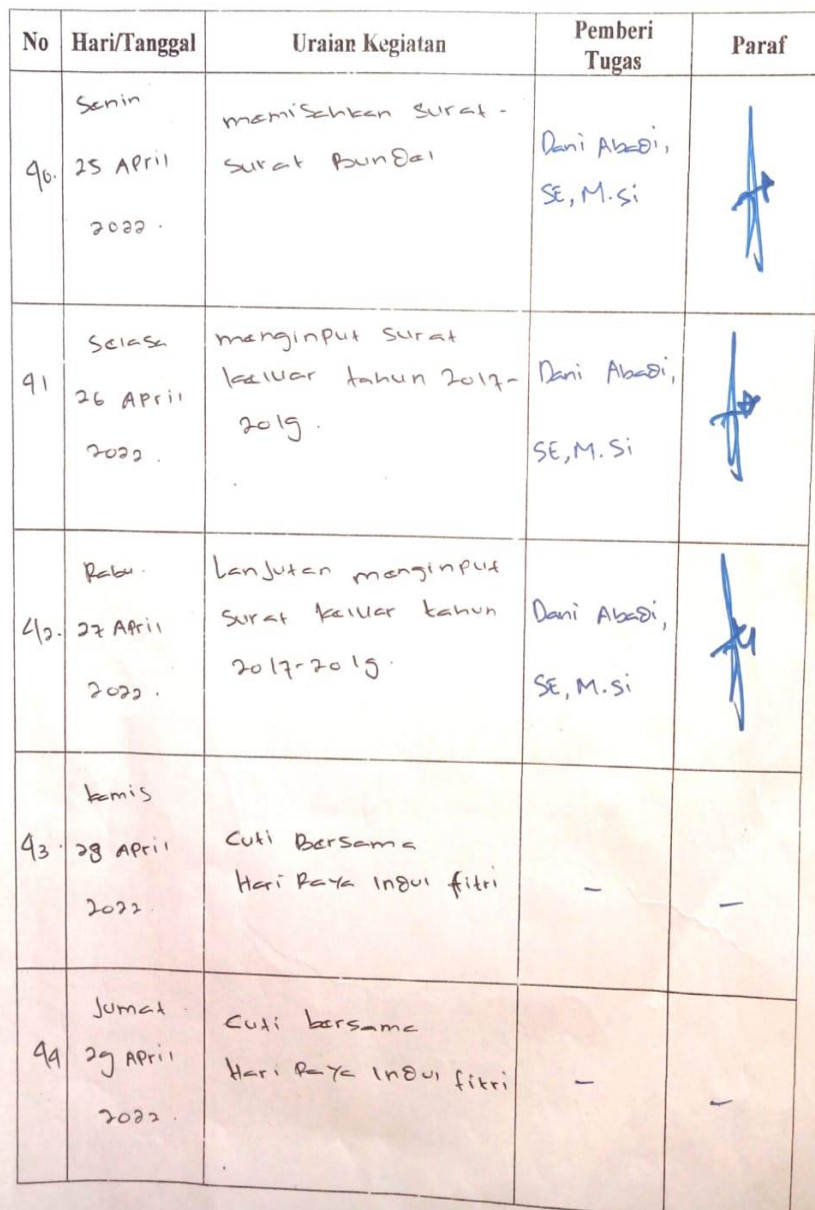 No Hari/Tanggal Uraian Kegiatan Pemberi Tugas Paraf
40. Senin 25 April 2022. memisahkan surat-
surat Bundel
Dani Abadi, SE, M.Si
41 Selasa 26 April 2022. menginput surat
keluar tahun 2017-
2019.
Dani Abadi, SE, M.Si
42. Rabu. 27 April 2022. Lanjutan menginput
surat keluar tahun
2017-2019.
Dani Abadi, SE, M.Si
43. kamis 28 April 2022. Cuti Bersama
Hari Raya Indul fitri
-
-
44 Jumat. 29 April 2022. Cuti bersama
Hari Raya Indul fitri
-
-